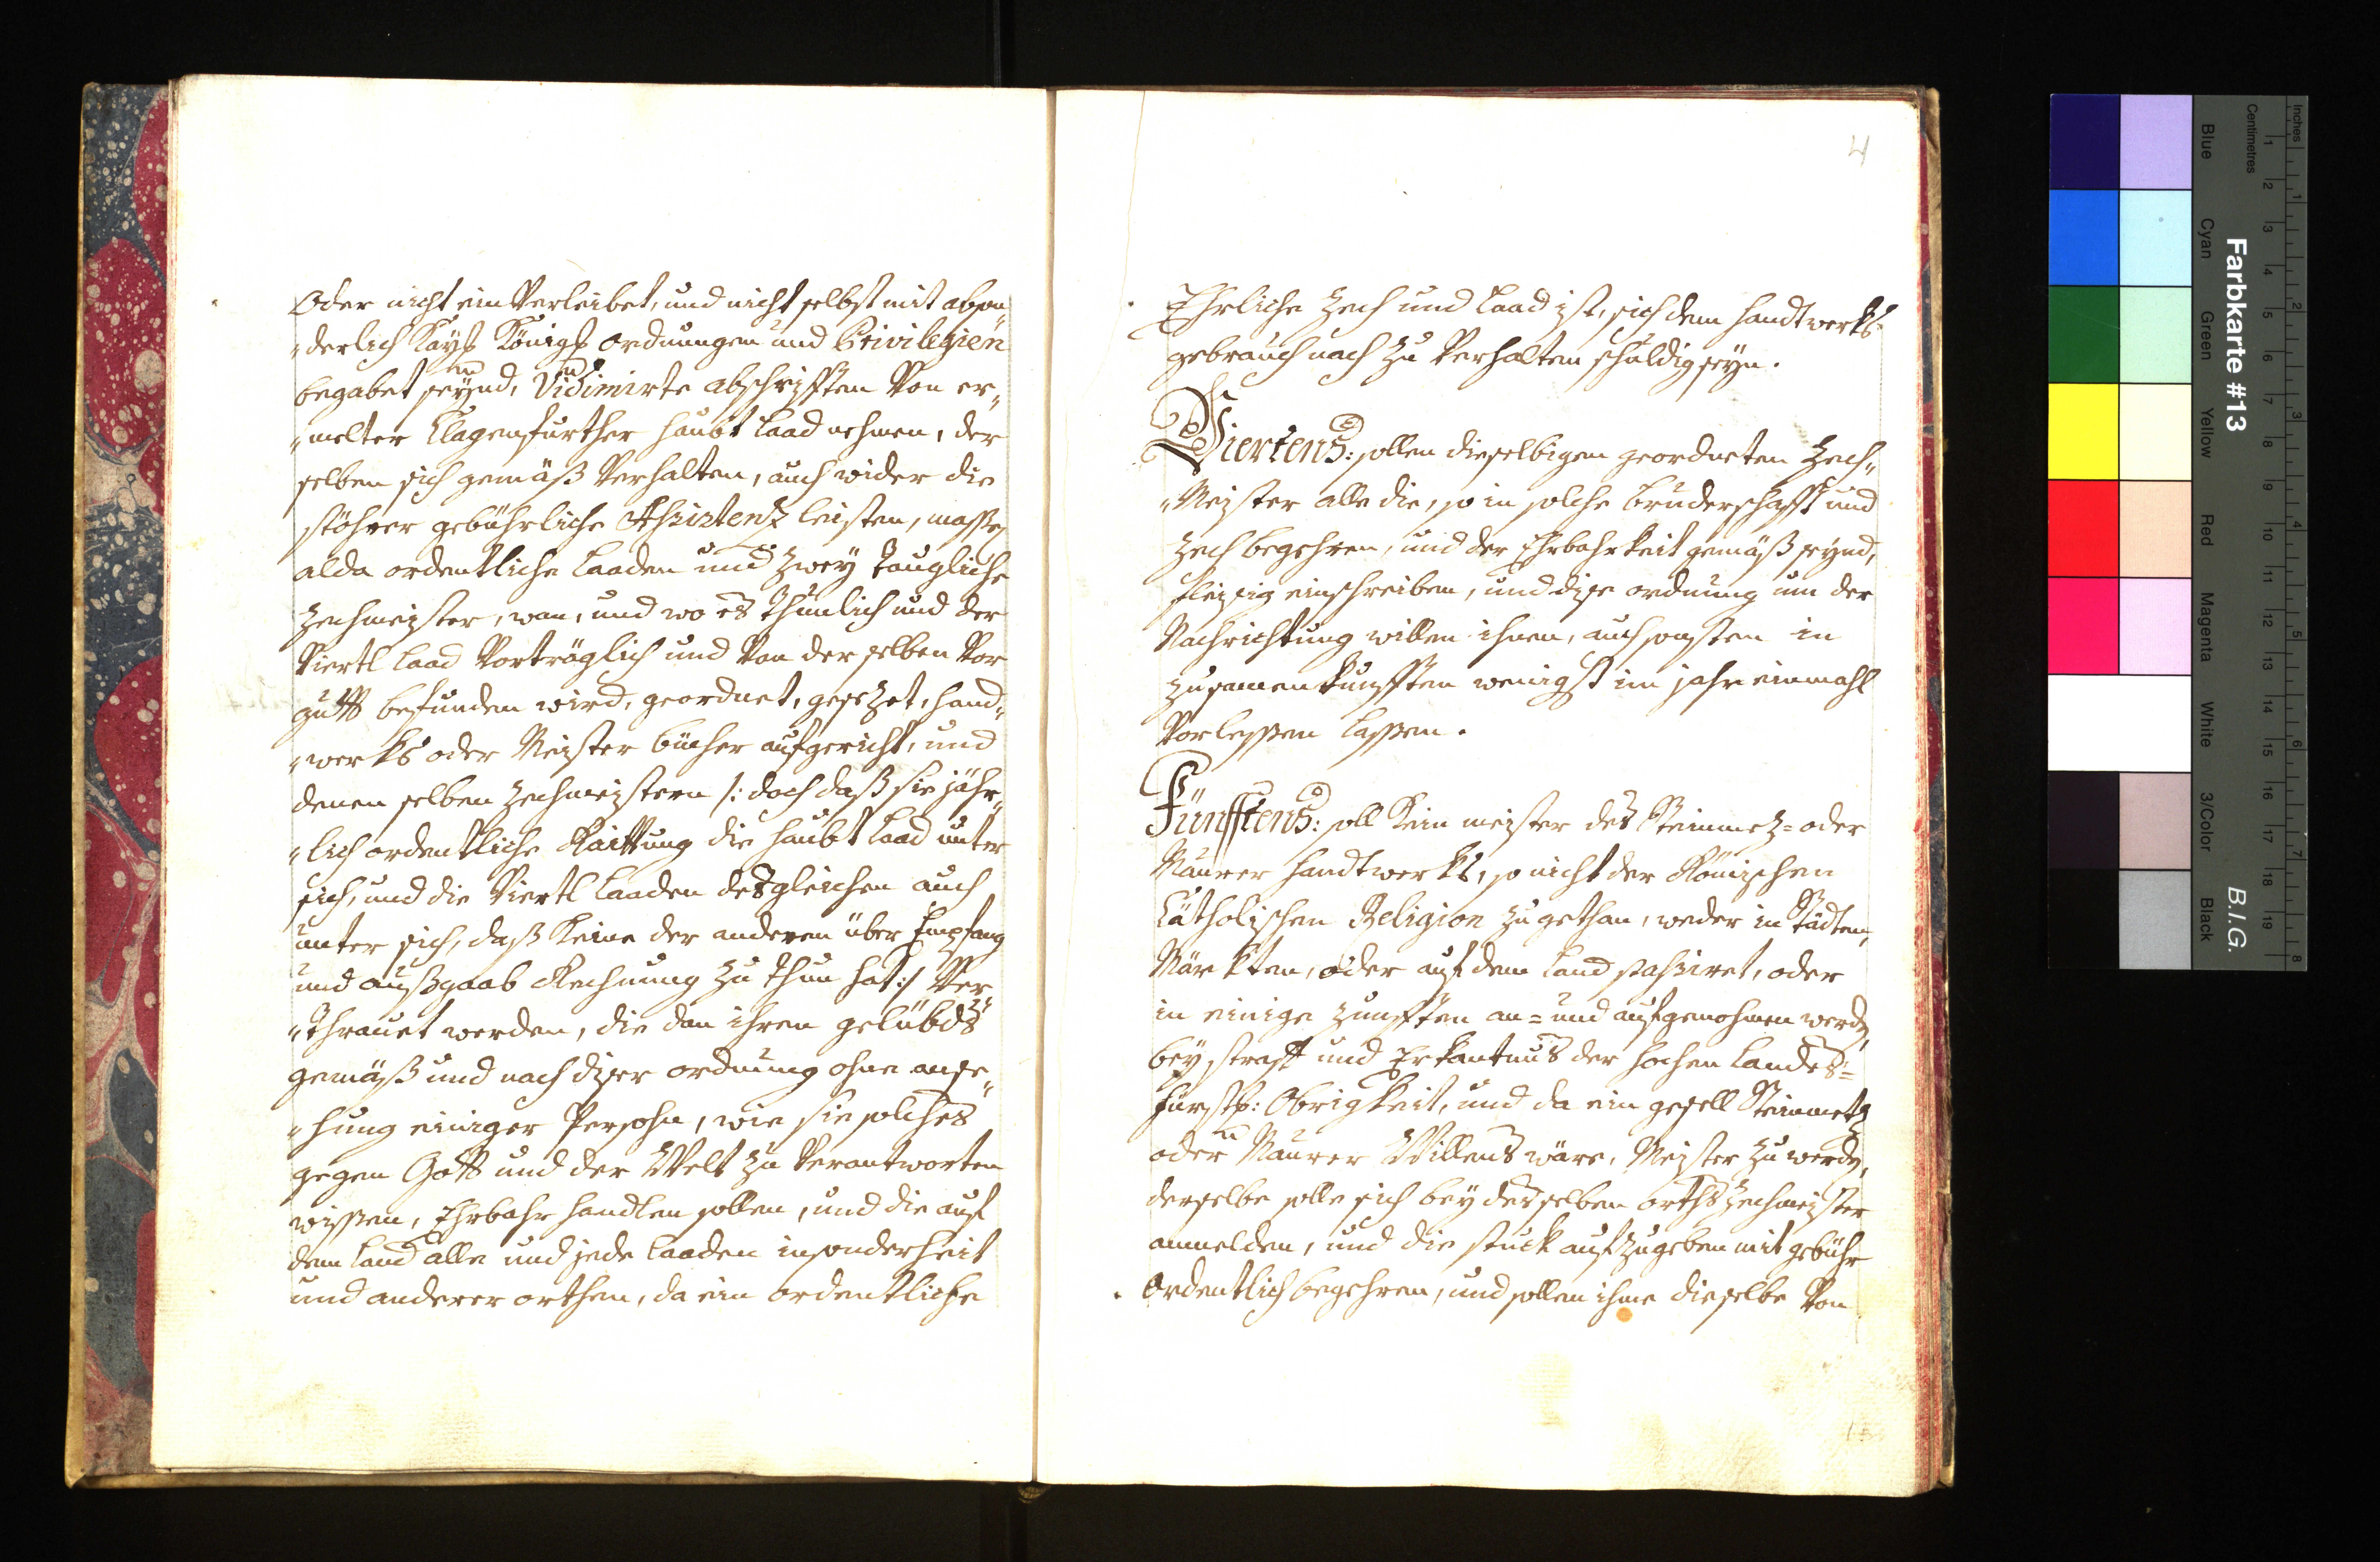 Oder nicht ein Verleibet, und nicht selbst mit abson„
„derlich Kays Königs ordnungen und Privilegien
begabet seynd, Vidimirte abschrifften Von er„
„melter Clagenfurther haubt Laad nehmen, der
selben sich gemäß Verhalten, auch wider die
stöhrer gebührliche Assistentz leisten, masse
alda ordentliche Laaden und zwey taugliche
Zechmeister, wan, und wo es thunlich und der
Viertl Laad Vorträglich und Von der selben Vor
gutt befunden wird, geordnet, gesezet, hand„
„werks oder Meister bücher aufgericht, und
denen selben Zechmeistern /: doch daß sie jähr„
„lich ordentliche Raittung die haubt Laad unter
sich, und die Viertl Laaden desgleichen auch
unter sich, daß keine der anderen über Empfang
und außgaab Rechnung zu thun hat :/ Ver
„thrauet werden, die dan ihren gelübds
gemäß und nach diser ordnung ohne anse„
„hung einiger Persohn, wie sie solches
gegen Gott und der Welt zu Verantworten
wissen, Ehrbahr handlen sollen, und die auf
dem Land alle und jede Laaden insonderheit
und anderer orthen, da ein ordentliche
4
Ehrliche Zech und Laad ist, sich dem handtwerks
gebrauch nach zu Verhalten schuldig seyn.
Viertens: sollen dieselbigen geordneten Zech„
„Meister alle die, so in solche Bruderschafft und
Zech begehren, und der Ehrbahrkeit gemäß seynd,
fleisig einschreiben, und dise ordnung um der
Nachrichtung willen ihnen, auch sonsten in
zusamenkunfften wenigst im jahr einmahl
Vorlessen lassen.
Fünfftens: soll kein meister des Steinmez= oder
Maurer handtwerks, so nicht der Römischen
Catholischen Religion zugethan, weder in Städten,
Märkten, oder auf dem Land passiret, oder
in einige zunfften an= und aufgenohmen werdn,
bey straff und Erkantnus der hochen Landes=
fürstl: Obrigkeit, und da ein gesell Steinmetz
oder Maurer Willens wäre, Meister zu werdn,
derselbe solle sich bey desselben orths Zechmeister
anmelden, und die stuck aufzugeben mit gebühr
Ordentlich begehren, und sollen ihme dieselbe Von
Inches
Centimetres
Farbkarte #13
B.I.G.
Blue
Cyan
Green
Yellow
Red
Magenta
White
3/Color
Black